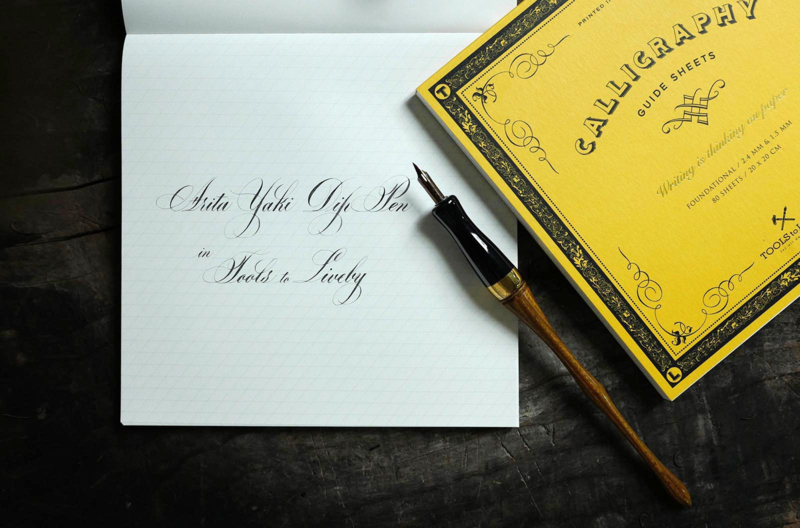 Arita Yaki Dip Pen
in Tools to Liveby
PRINTED
CALLIGRAPHY
GUIDE SHEETS
Writing is thinking on paper
FOUNDATIONAL / 2.4 MM & 1.5 MM
80 SHEETS / 20 x 20 CM
TOOLS to
T
L